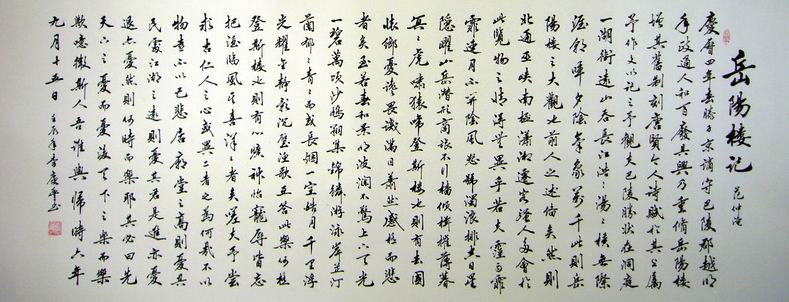 岳陽樓記 范仲淹
慶曆四年春滕子京謫守巴陵郡越明
年政通人和百廢具興乃重脩岳陽樓
增其舊制刻唐賢今人詩賦於其上屬
予作文以記之予觀夫巴陵勝狀在洞庭
一湖銜遠山吞長江浩〻湯〻橫無際
涯朝暉夕陰氣象萬千此則岳
陽樓之大觀也前人之述備矣然則
北通巫峽南極瀟湘遷客騷人多會於
此覽物之情得無異乎若夫霪雨霏
霏連月不開陰風怒號濁浪排空日星
隱曜山岳潛形商旅不行檣傾楫摧薄暮
冥〻虎嘯猿啼登斯樓也則有去國
懷鄉憂讒畏譏滿目蕭然感極而悲
者矣至若春和景明波瀾不驚上下天光
一碧萬頃沙鷗翔集錦鱗游泳岸芷汀
蘭郁〻青〻而或長煙一空皓月千里浮
光耀金靜影沉璧漁歌互答此樂何極
登斯樓也則有心曠神怡寵辱皆忘
把酒臨風其喜洋〻者矣嗟夫予嘗
求古仁人之心或異二者之為何哉不以
物喜不以己悲居廟堂之高則憂其
民處江湖之遠則憂其君是進亦憂
退亦憂然則何時而樂耶其必曰先
天下之憂而憂後天下之樂而樂
歟噫微斯人吾誰與歸時六年
九月十五日 壬辰年李慶書